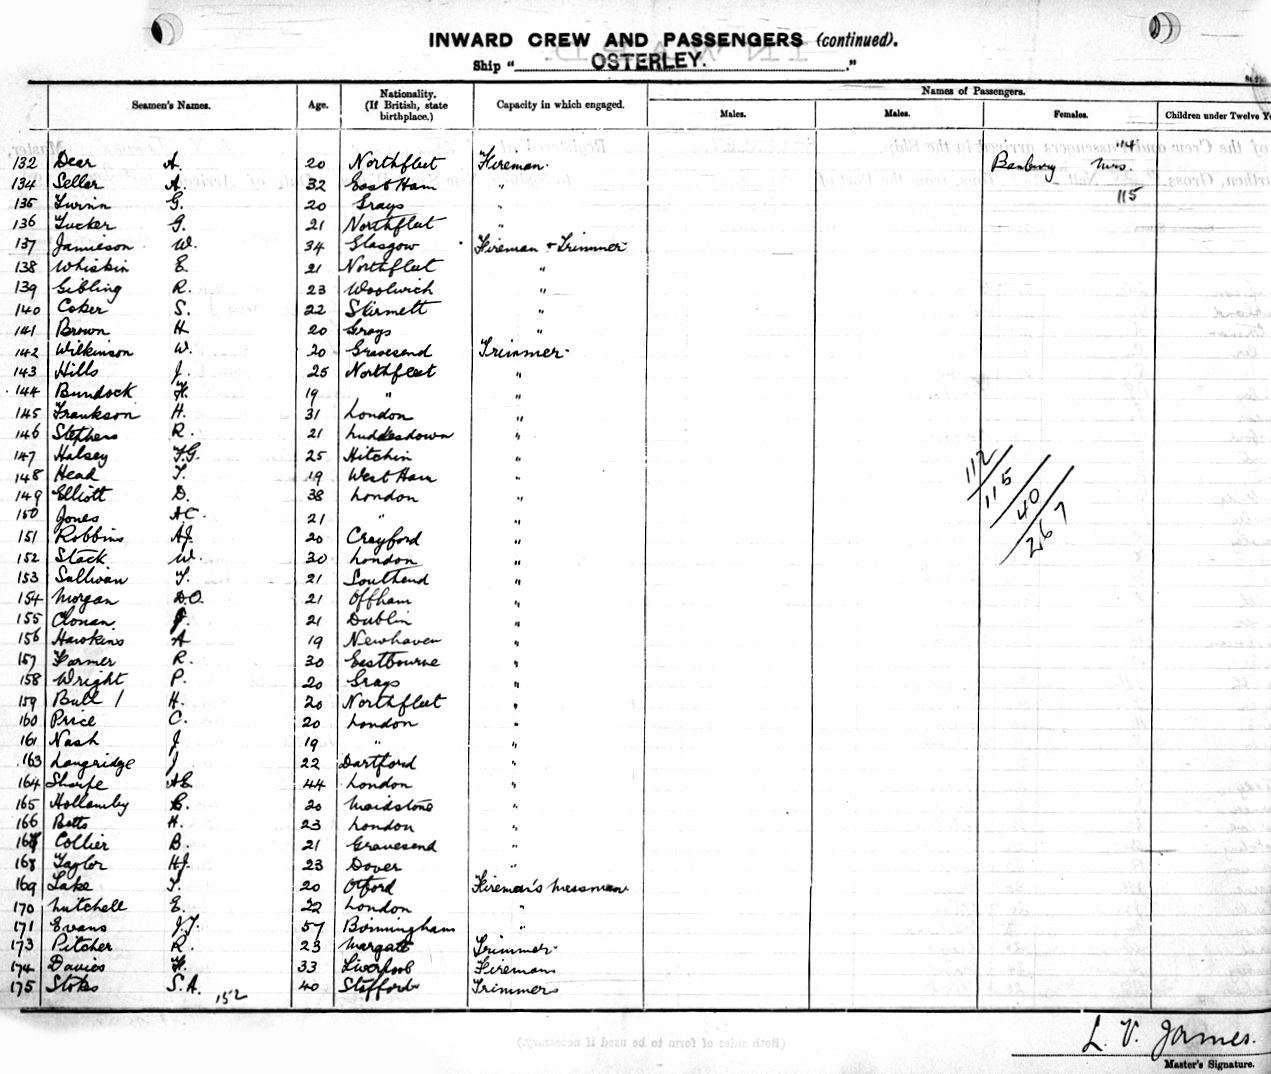 INWARD CREW AND PASSENGERS (continued).
Ship " OSTERLEY. "
Seamen's Names. Age. Nationality. (If British, state birthplace.) Capacity in which engaged. Names of Passengers.
Males. Males. Females. Children under Twelve Ye
114
132 Dear A. 20 Northfleet Fireman. Banbury Mrs.
134 Sellar A. 32 East Ham "
115
135 Twinn G. 20 Grays "
136 Tucker G. 21 Northfleet "
137 Jamieson W. 34 Glasgow Fireman + Trimmer
138 Whiskin E. 21 Northfleet "
139 Gibling R. 23 Woolwich "
140 Coker S. 22 Skirmett "
141 Brown H. 20 Grays "
142 Wilkinson W. 20 Gravesend Trimmer.
143 Hills J. 25 Northfleet "
144 Bundock F. 19 " "
145 Frankson H. 31 London "
146 Stephens R. 21 Luddesdown "
147 Halsey F.G. 25 Hitchin "
148 Head T. 19 West Ham "
149 Elliott D. 38 London "
150 Jones A.C. 21 " "
151 Robbins A.J. 20 Crayford "
152 Stack W. 30 London "
153 Sullivan T. 21 Southend "
154 Morgan D.O. 21 Offham "
155 Clonan J. 21 Dublin "
156 Hawkins A 19 Newhaven "
157 Farmer R. 30 Eastbourne "
158 Wright P. 20 Grays "
159 Bull H. 20 Northfleet "
160 Price C. 20 London "
161 Nash J. 19 " "
163 Langridge J 22 Dartford "
164 Sharpe A.E. 44 London "
165 Hollamby E. 20 Maidstone "
166 Betts H. 23 London "
167 Collier B. 21 Gravesend "
168 Taylor H.J. 23 Dover "
169 Lake T. 20 Otford Fireman's Messman
170 Mitchell E. 22 London "
171 Evans J.T. 57 Birmingham "
173 Pitcher R. 23 Margate Trimmer.
174 Davies F. 33 Liverpool Fireman
175 Stokes S.A. 40 Stafford Trimmers
152
112
115
40
267
L. V. James.
Master's Signature.
(Both sides of form to be used if necessary.)